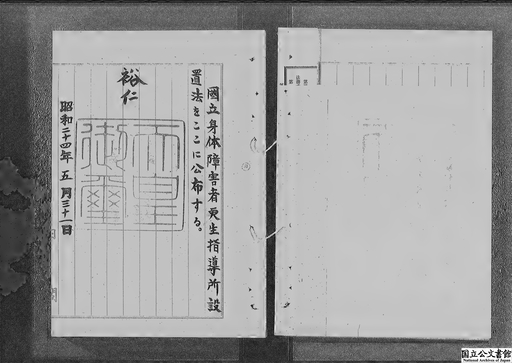 國立身体障害者更生指導所設
置法をここに公布する。
裕仁
天皇
御璽
昭和二十四年五月三十一日
国立公文書館
National Archives of Japan